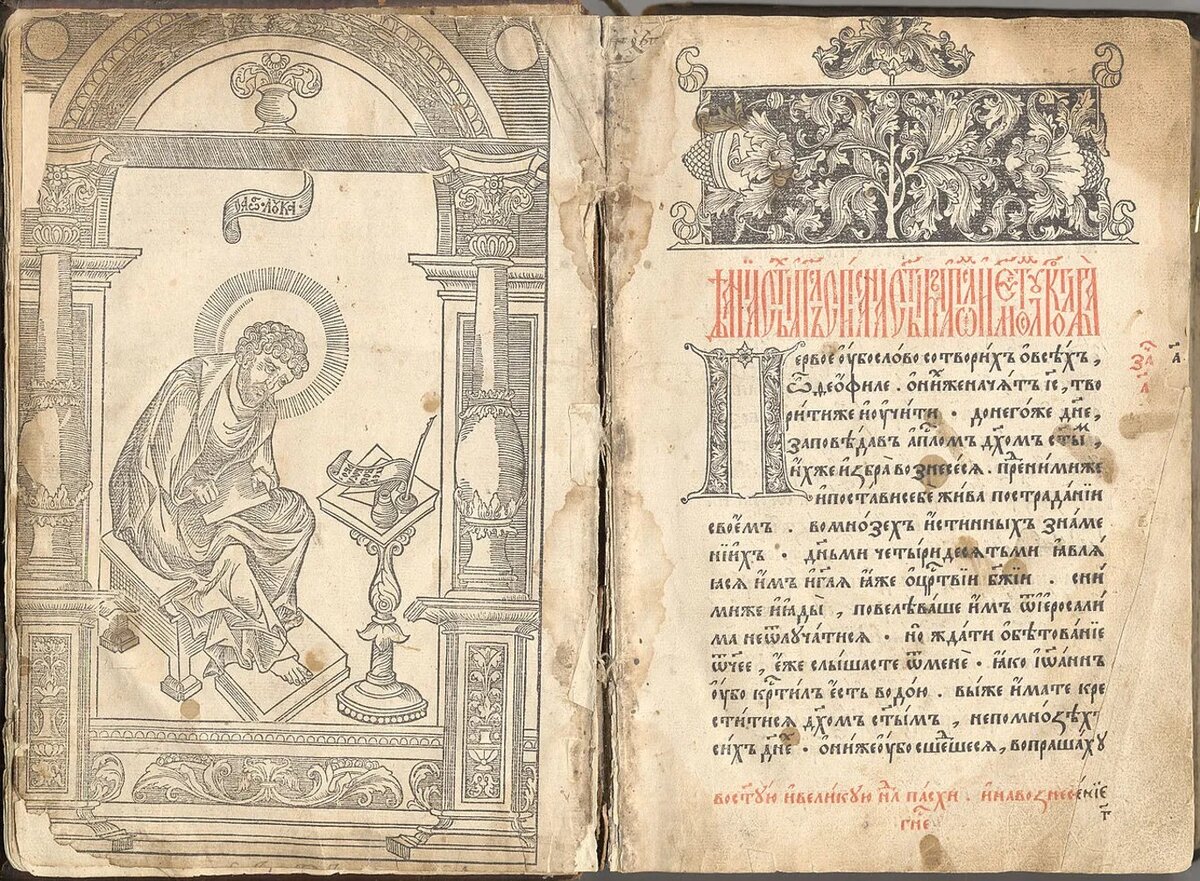 лꙋка
Первое ᲂубо слово сотворихъ ѡ всѣхъ ,
ѽ деофиле . ѡ ниже начатъ і҃с , тво
рити же и ᲂучити · до негоже дн҃е ,
заповѣдавъ ап҃лом дх҃ом ст҃ым ,
ихже избра вознесеся . пренимиже
и постави себе жива по страданїи
своемъ . во мнозехъ истинныхъ знаме
нїихъ · дн҃ьми четыридесятьми ꙗвлѧ
ꙗсѧ имъ и гл҃ѧ ꙗже о цр҃твїи бж҃їи . с ни
миже и ꙗды , повелѣваше имъ ѿ іеросали
ма не ѿлучатисѧ · но ждати обѣтованїе
ѿчее , еже слышасте ѿ мене · ꙗко іѡаннъ
ᲂубо кр҃тил есть водою . вы же имате кре
ститисѧ дх҃омъ ст҃ымъ , не по мнозѣхъ
сихъ дн҃ехъ · они же ᲂубо сшедшесѧ , вопрашаху
во ст҃ую и великую нл҃ пасхи . и на вознесенїе
гн҃е
г҃